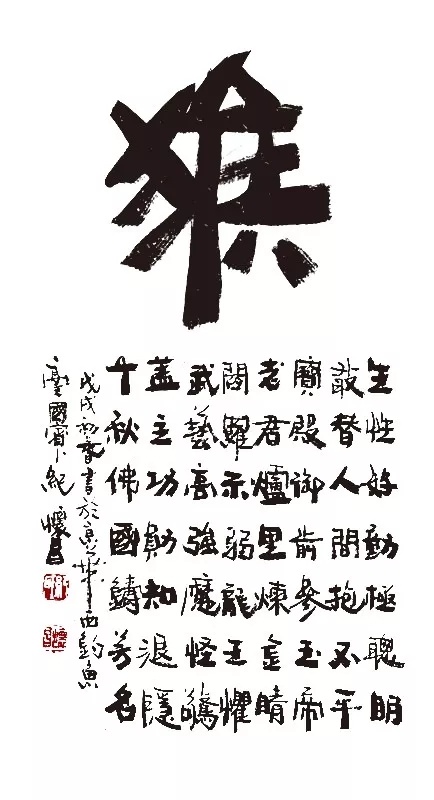 猴
生性好動極聰明
敢替人間抱不平
寶殿御前參玉帝
老君爐里煉金睛
閻羅示弱龍王懼
武藝高強魔怪驚
蓋主功勛知退隱
千秋佛國鑄芳名
戊戌初春書於京華西釣魚
臺國賓下紀懷昌